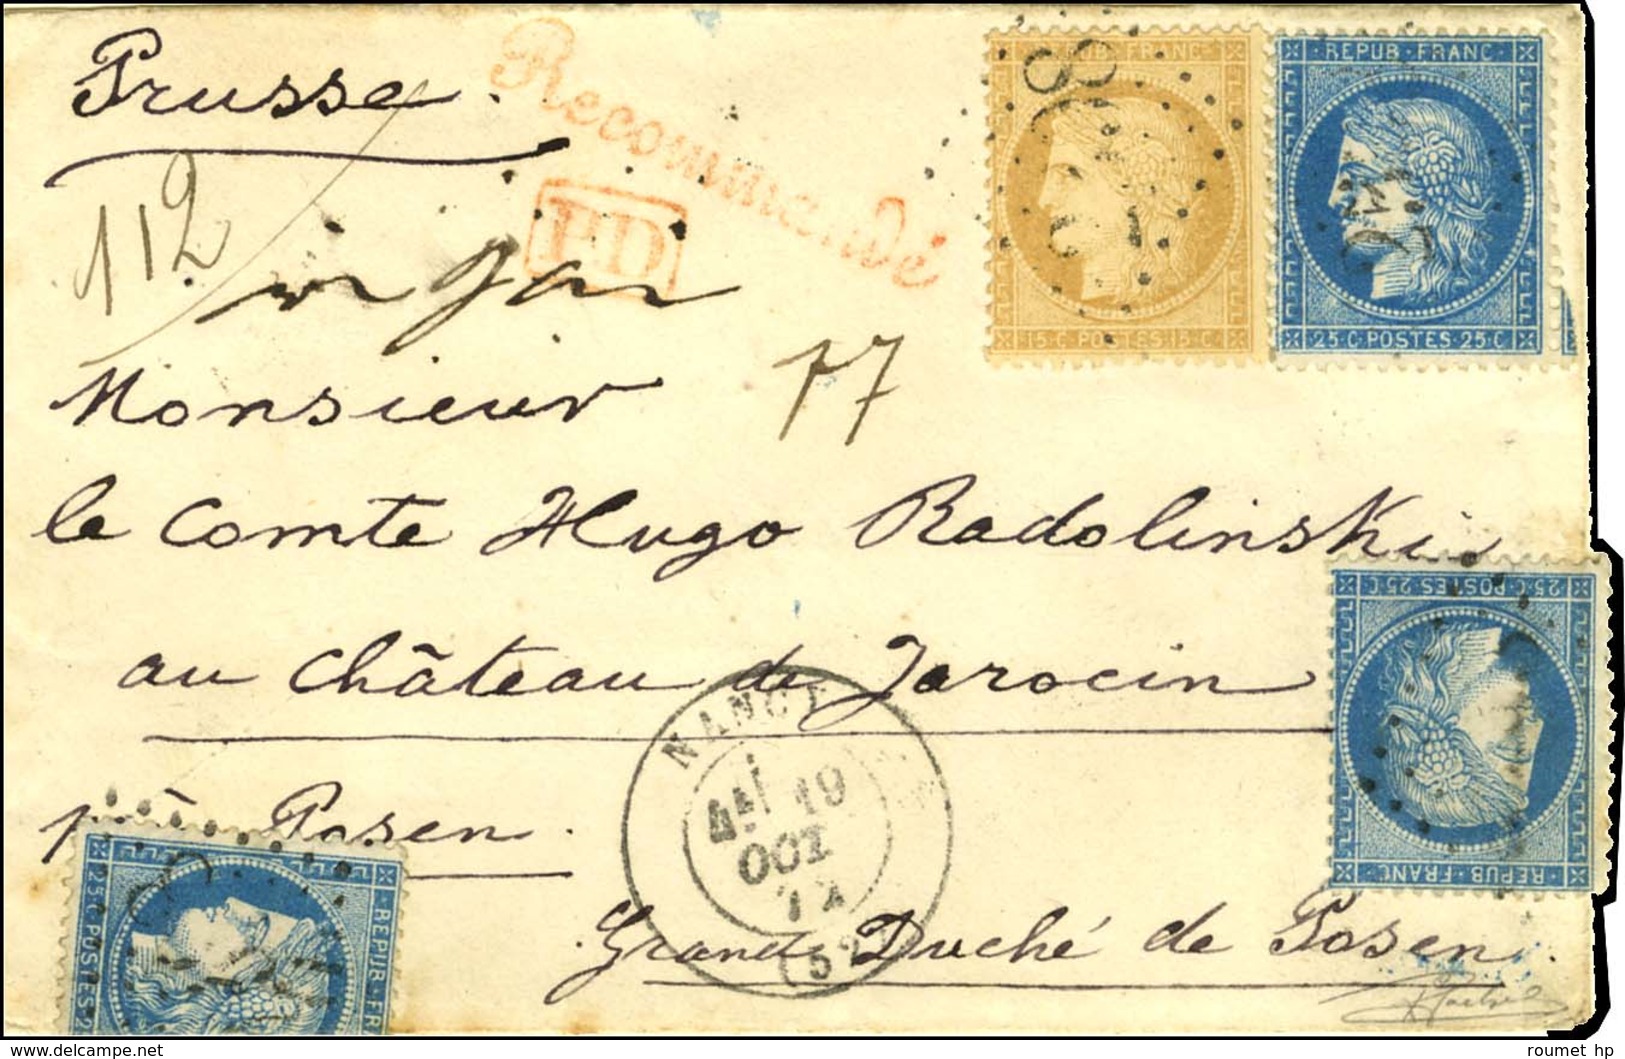 Prusse
Recommandé
PD
112
77
Monsieur
le Comte Hugo Radolinski
au Château de Jarocin
près Posen
Grand Duché de Posen
NANCY
19
OCT.
(52)
FRANC
15·C·POSTES·15·C
REPUB·FRANC
25·C·POSTES·25·C
25·C·POSTES·25·C
REPUB·FRANC
REPUB·FR
25·C·POSTES·2
delcampe.net
roumet hp